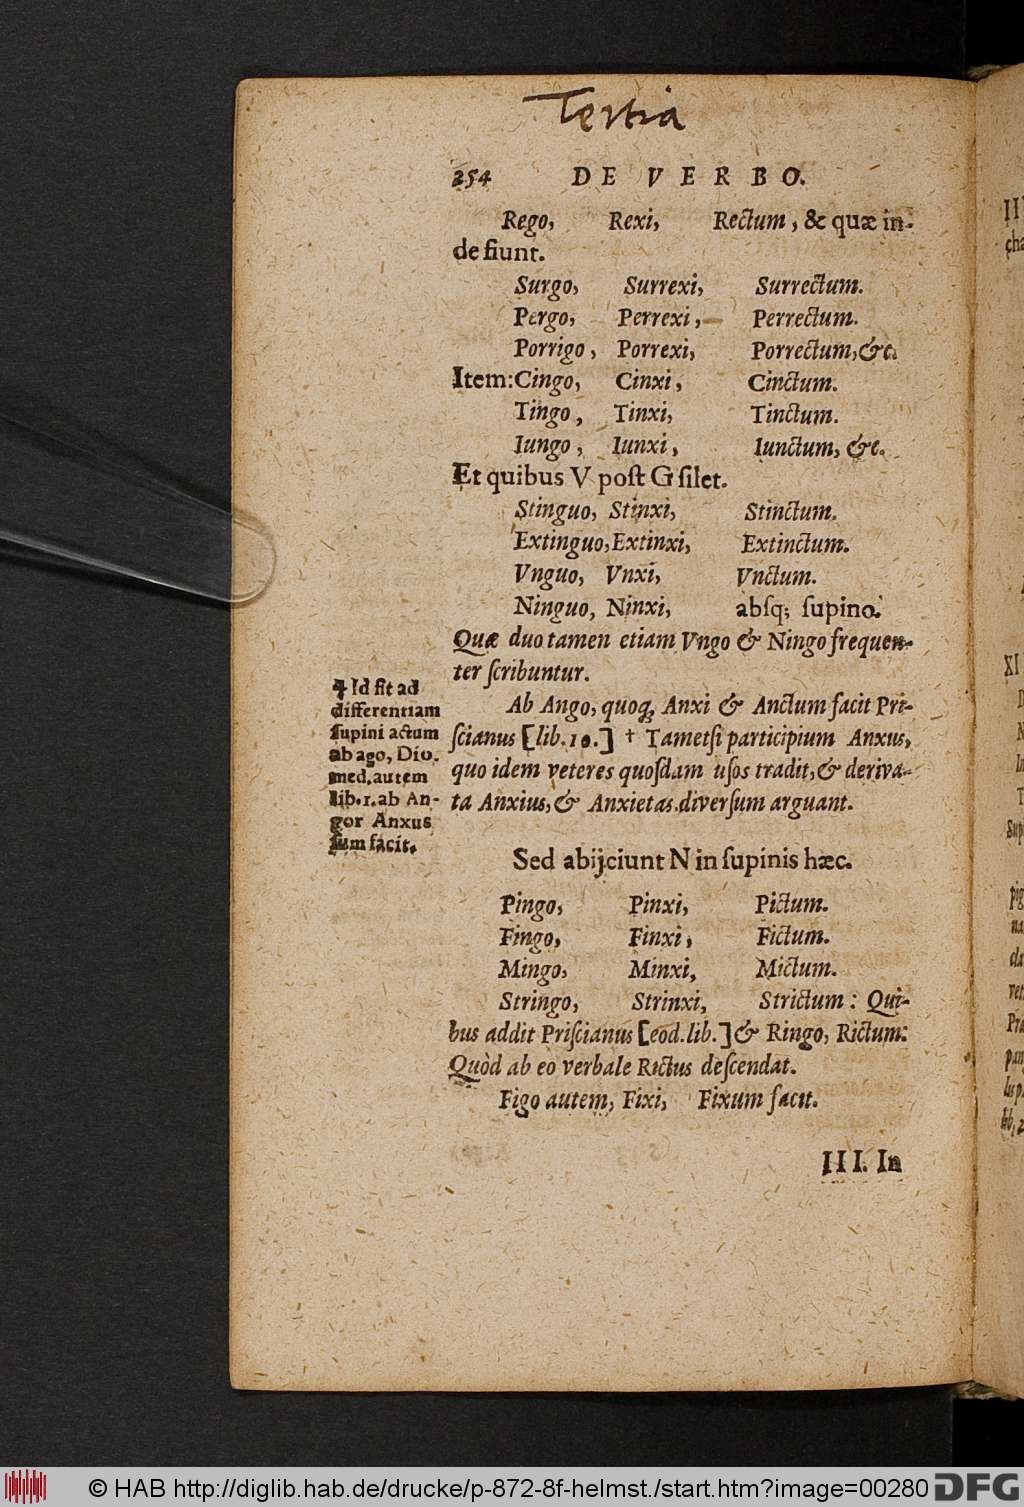 Tertia
254 DE VERBO.
Rego, Rexi, Rectum, & quæ in-
de fiunt.
Surgo, Surrexi, Surrectum.
Pergo, Perrexi, Perrectum.
Porrigo, Porrexi, Porrectum, &c.
Item: Cingo, Cinxi, Cinctum.
Tingo, Tinxi, Tinctum.
Iungo, Iunxi, Iunctum, &c.
Et quibus V poſt G ſilet.
Stinguo, Stinxi, Stinctum.
Extinguo, Extinxi, Extinctum.
Vnguo, Vnxi, Vnctum.
Ninguo, Ninxi, abſq; ſupino.
Quæ duo tamen etiam Vngo & Ningo frequen-
ter ſcribuntur.
Ab Ango, quoq, Anxi & Anctum facit Pri-
ſcianus [lib. 10.] † Tametſi participium Anxus,
quo idem veteres quoſdam uſos tradit, & deriva-
ta Anxius, & Anxietas diverſum arguant.
Sed abijciunt N in ſupinis hæc.
Pingo, Pinxi, Pictum.
Fingo, Finxi, Fictum.
Mingo, Minxi, Mictum.
Stringo, Strinxi, Strictum: Qui-
bus addit Priſcianus [eod. lib.] & Ringo, Rictum:
Quòd ab eo verbale Rictus deſcendat.
Figo autem, Fixi, Fixum facit.
III. In
Id fit ad
differentiam
ſupini actum
ab ago, Dio.
med. autem
lib. 1. ab An-
gor Anxus
ſum facit.
© HAB http://diglib.hab.de/drucke/p-872-8f-helmst./start.htm?image=00280
DFG